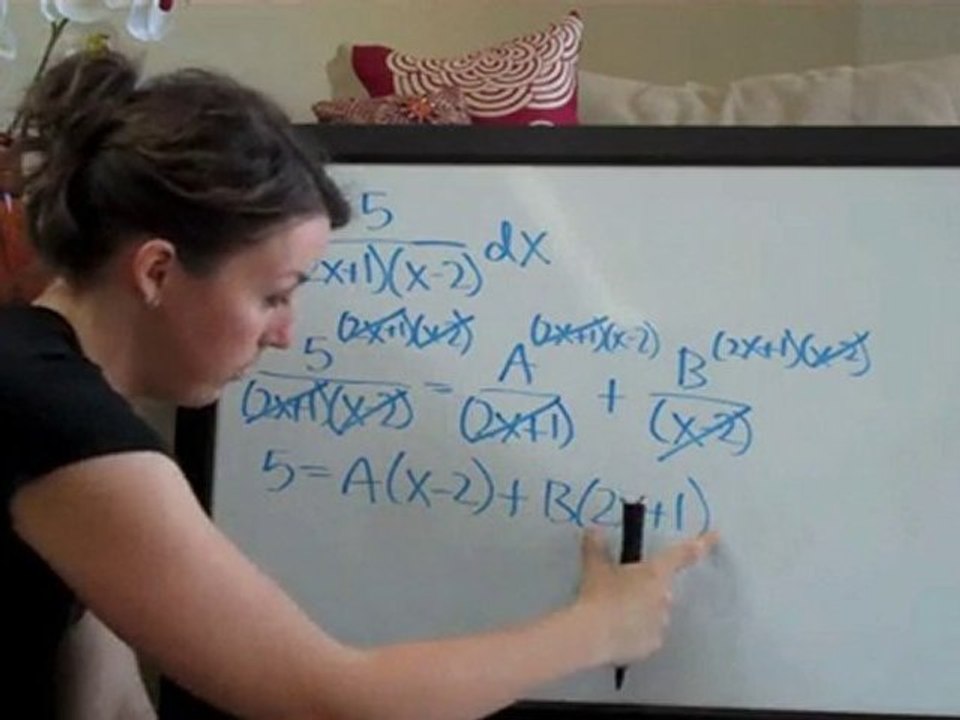 5
x+1)(x-2) dx
5 (2x+1)(x-2) A (2x+1)(x-2) B (2x+1)(x-2)
(2x+1)(x-2) = (2x+1) + (x-2)
5=A(x-2)+B(2x+1)